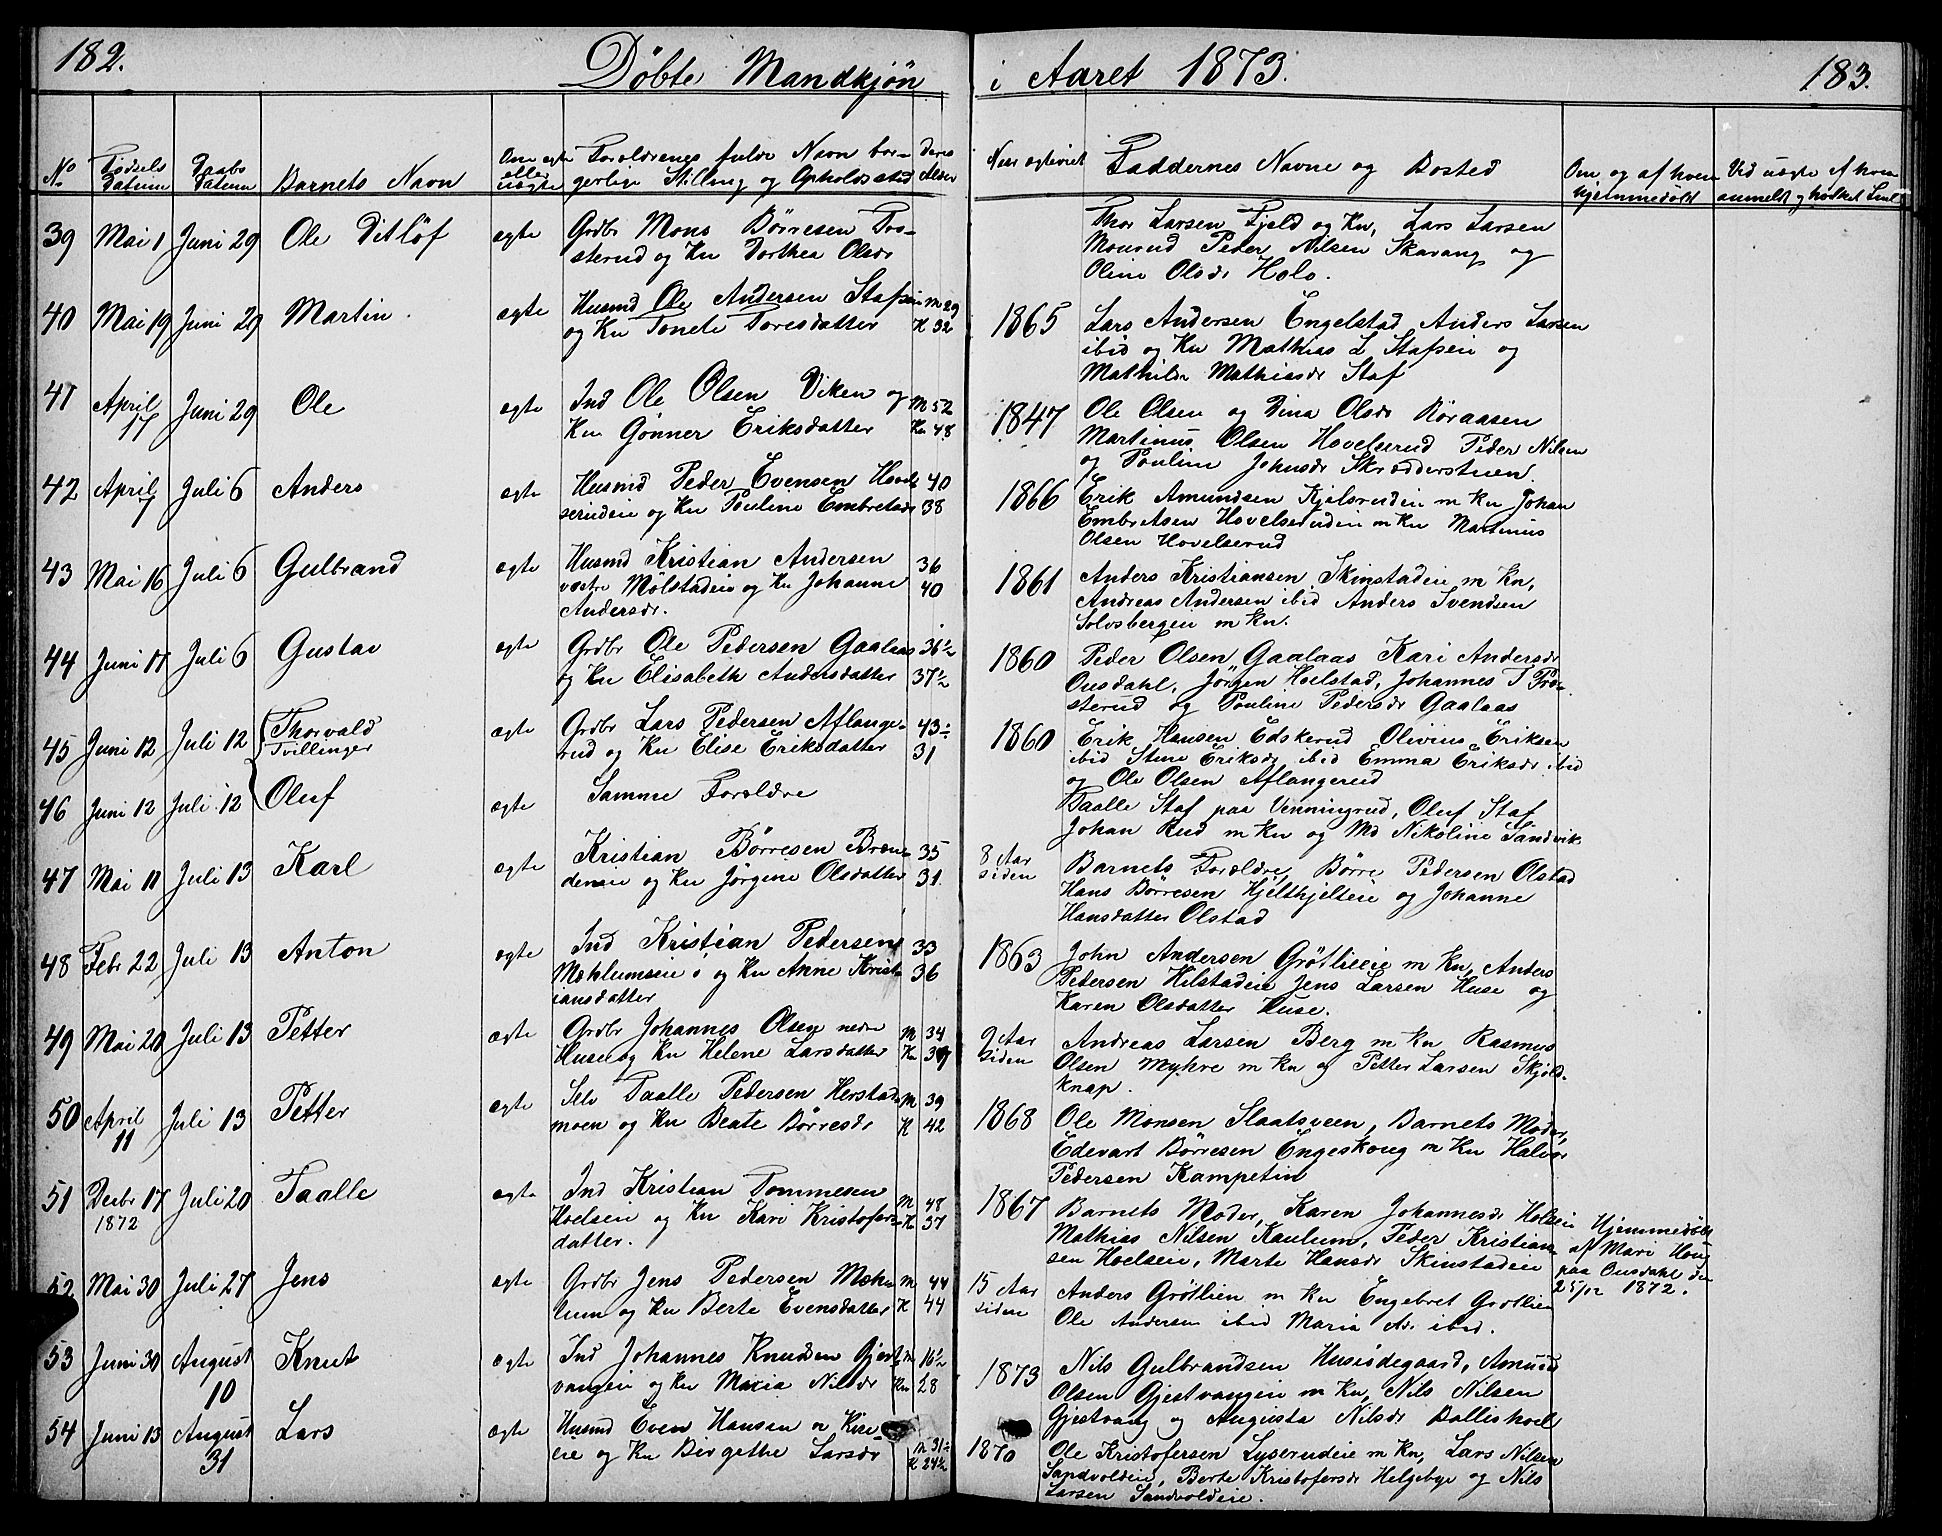 182.
Döbte Mandkjön
i Aaret 1873.
183.
No
Födsels Datum
Daabs Datum
Barnets Navn
Om egte eller uegte
Foreldrenes fulde Navn bor-
gerlige Stilling og Opholdssted
deres Alder
Naar egteviet
Faddernes Navne og Bosted
Om og af hvem hjemmedöbt
Ved uegte af hvem
anmeldt og hvilket
39 Mai 1 Juni 29 Ole Ditlöf ægte Grdbr Mons Börresen Fos-
sterud og Kn Dorthea Olsdr
Thor Larsen Fjeld og Kn, Lars Larsen
Mourud Peder Nilsen Skavang og
Oline Olsdr Holo.
40 Mai 19 Juni 29 Martin. ægte Husmd Ole Andersen Stafseie M 29
og Kn Tonete Toresdatter K 32
1865 Lars Andersen Engelstad Anders Larsen
ibid og Kn Mathias L Stafseie og
Mathilde Mathiasdr Staf
41 April 17 Juni 29 Ole ægte Ind Ole Olsen Viken og M 52
Kn Gönner Eriksdatter Kn 48
1847 Ole Olsen og Dina Olsdr Röraasen
Martinus Olsen Hovelserud Peder Nilsen
og Pouline Johnsdr Skrædderstuen.
42 April 7 Juli 6 Anders ægte Husmd Peder Evensen Hovel 40
serudeie og Kn Pouline Embretsdr 38
1866 Erik Amundsen Kjelsrudeie m Kn Johan
Embretsen Hovelserudeie m Kn Martinus
Olsen Hovelserud
43 Mai 16 Juli 6 Gulbrand ægte Husmd Kristian Andersen 36
vestre Mölstadeie og Kn Johanne 40
Andersdr.
1861 Anders Kristiansen Skinstadeie m Kn,
Andreas Andersen ibid Anders Svendsen
Solvsbergeie m Kn.
44 Juni 17 Juli 6 Gustav ægte Grdbr Ole Pedersen Gaalaas 36½
og Kn Elisabeth Andersdatter 37½
1860 Peder Olsen Gaalaas Kari Andersdr
Ousdahl, Jörgen Heilstad, Johannes T Fro-
sterud og Pouline Pedersdr Gaalaas
45 Juni 12 Juli 12 Thorvald ægte Grdbr Lars Pedersen Aflange- 43½
Tvillinger rud og Kn Elise Eriksdatter 31
1860 Erik Hansen Edskerud Olivius Eriksen
ibid Stine Eriksdr ibid Emma Eriksdr ibid
og Ole Olsen Aflangerud
46 Juni 12 Juli 12 Oluf ægte Samme Foreldre
Paalle Staf paa Venningrud, Oluf Staf
Johan Rud m Kn og Md Nikoline Sandvik
47 Mai 11 Juli 13 Karl ægte Kristian Börresen Bræn- 35
deneie og Kn Jörgine Olsdatter 31.
8 Aar siden Barnets Forældre, Börre Pedersen Olstad
Hans Börresen Hjelthjelteie og Johanne
Hansdatter Olstad
48 Febr 22 Juli 13 Anton ægte Ind Kristian Pedersen 33
Mæhlumseie og Kn Anne Krist 36
iansdatter
1863 John Andersen Grötlieeie m Kn, Anders
Pedersen Hilstadeie Jens Larsen Huse og
Karen Olsdatter Huse.
49 Mai 20 Juli 13 Petter ægte Grdbr Johannes Olsen nedre M 34
Huse og Kn Helene Larsdatter K
9 Aar siden Andreas Larsen Berg m Kn Rasmus
Olsen Myhre m Kn og Petter Larsen Skjöld-
knap.
50 April 11 Juli 13 Petter ægte Selv Paalle Pedersen Herstad M 39
moen og Kn Beate Börresdr K 42
1868 Ole Monsen Slaatsveen, Barnets Moder,
Edevart Börresen Engeskoug m Kn Halvor
Pedersen Kampetin
51 Decbr 17 1872 Juli 20 Paalle ægte Ind Kristian Tommesen M 48
Hoelseie og Kn Kari Kristofers- K 37
datter.
1867 Barnets Moder, Karen Johannesdr Holseie
Mathias Nilsen Kaulum, Peder Kristian-
sen Hoelseie, Marte Hansdr Skinstadeie
Hjemmedöbt
af Mari Houg
paa Ousdahl den
25/12 1872.
52 Mai 30 Juli 27 Jens ægte Grdbr Jens Pedersen Mæh M 44
lum og Kn Berte Evensdatter K 44
15 Aar siden Anders Grötlien m Kn Engebret Grötlien
Ole Andersen ibid Maria Adr ibid.
53 Juni 30 August 10 Knut ægte Ind Johannes Knudsen Gjest M
vangeie og Kn Maria Nilsdr Kn 28
1873 Nils Gulbrandsen Huseödegaard, Amund
Olsen Gjestvangeie m Kn, Nils Nilsen
Gjestvang og Augusta Nilsdr Ballishoel
54 Juni 13 August 31 Lars ægte Husmd Even Hansen n Kise
eie og Kn Birgethe Larsdr M 31½
K 24½
1870 Ole Kristofersen Lyserudeie m Kn, Lars Nilsen
Sandvoldeie, Berte Kristofersdr Helgebye og Nils
Larsen Sandvoldeie.